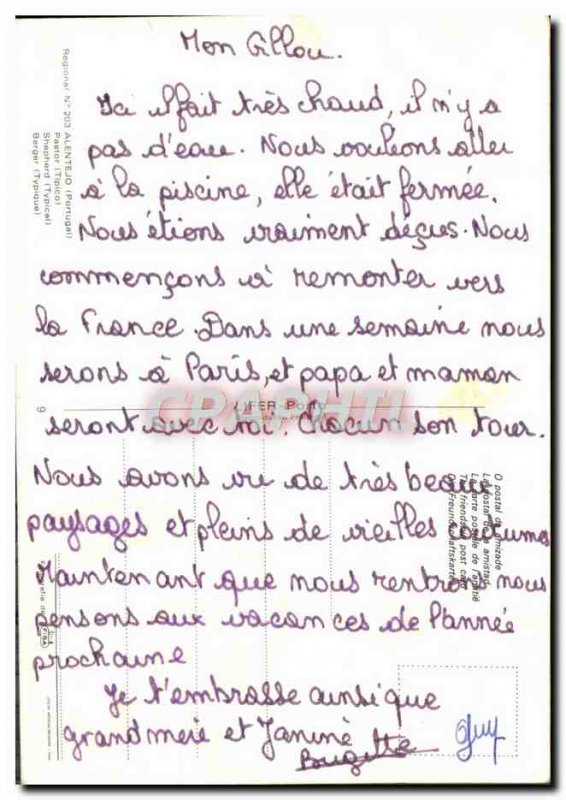 Mon Gillou.
Ici il fait très chaud, il n'y a
pas d'eau. Nous voulions aller
à la piscine, elle était fermée.
Nous étions vraiment déçus. Nous
commençons à remonter vers
la France. Dans une semaine nous
serons à Paris, et papa et maman
seront avec toi. Chacun son tour.
Nous avons vu de très beaux
paysages et pleins de vieilles coutumes
Maintenant que nous rentrons nous
pensons aux vacances de l'année
prochaine
Je t'embrasse ainsi que
grand meie et Janine
Brigitte
Guy
Regional N° 203 ALENTEJO (Portugal)
Pastor (Típico)
Shepherd (Typical)
Berger (Typique)
CPAPHIL
O postal da amizade
La postal de la amistad
La carte postale de l'amitié
The friendship post card
Die Freundschaftskarte